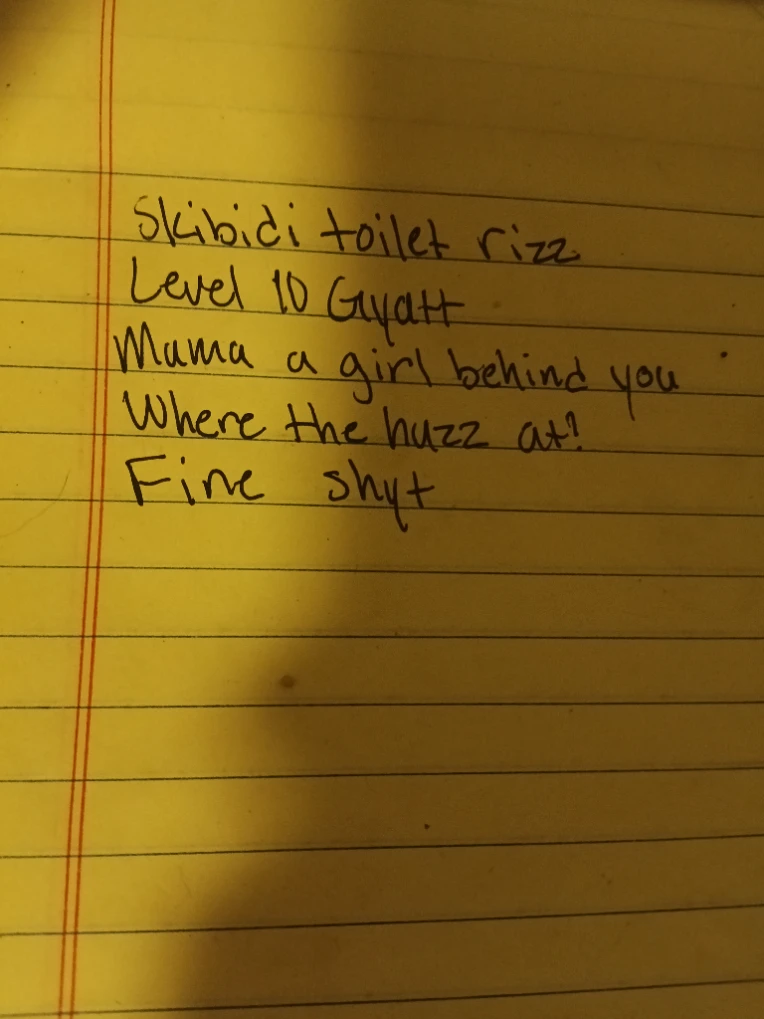 Skibidi toilet rizz
Level 10 Gyatt
Mama a girl behind you
Where the huzz at?
Fine shyt